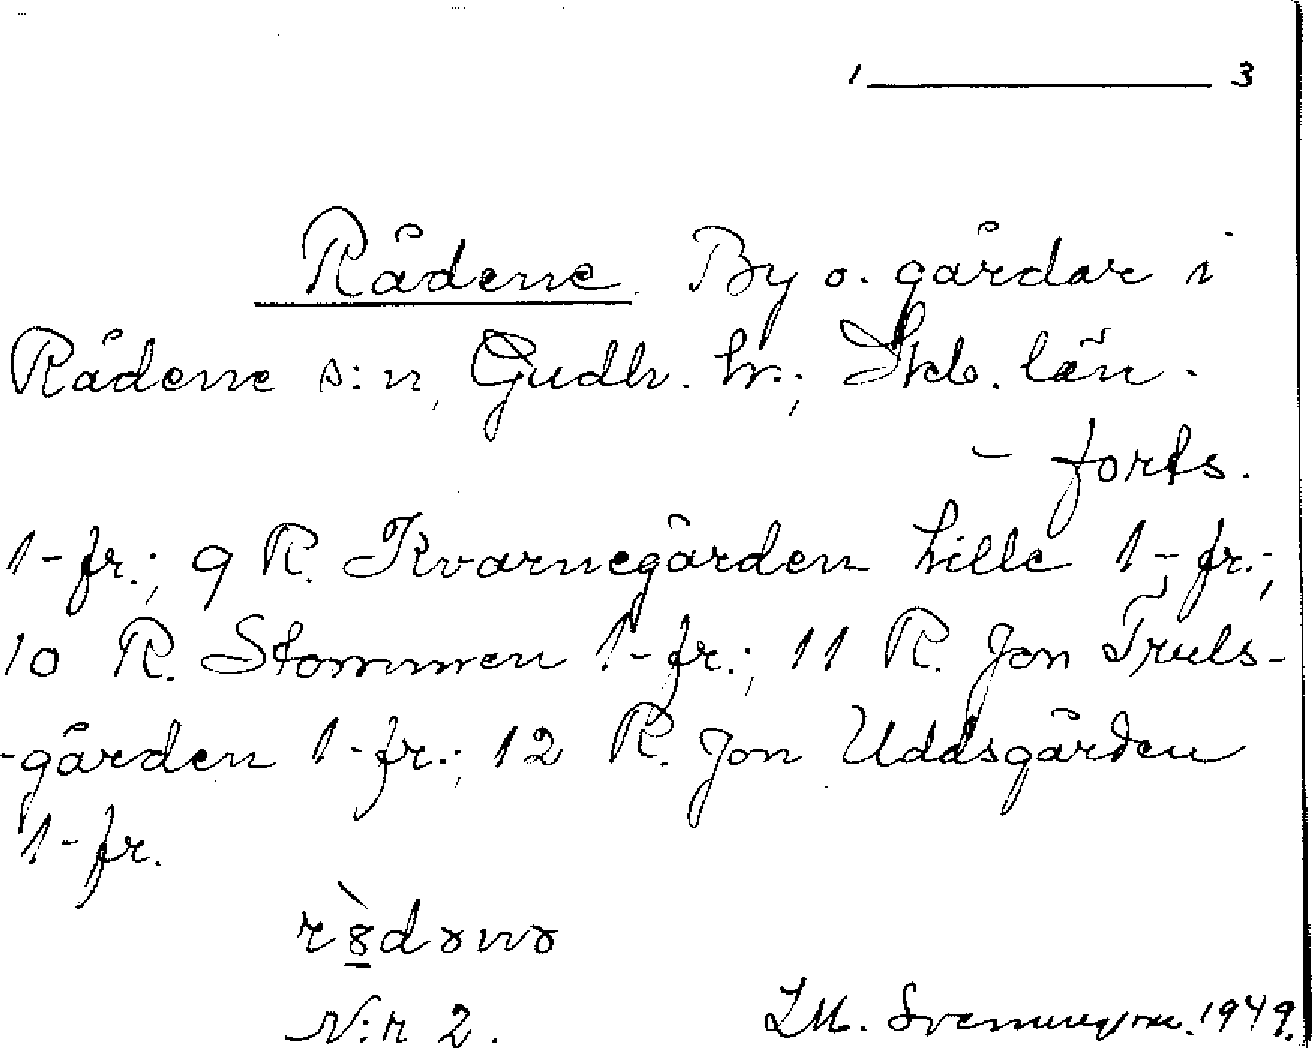 1 ——— 3
Rådene. By o. gårdar i
Rådene s:n, Gudh. hr.; Skb. län.
- forts.
1-fr.; 9 R. Kvarnegården Lille 1-fr.;
10 R. Stommen 1-fr.; 11 R. Jon Truls-
-gården 1-fr.; 12 R. Jon Uddsgården
1-fr.
N:r 2. 1949.